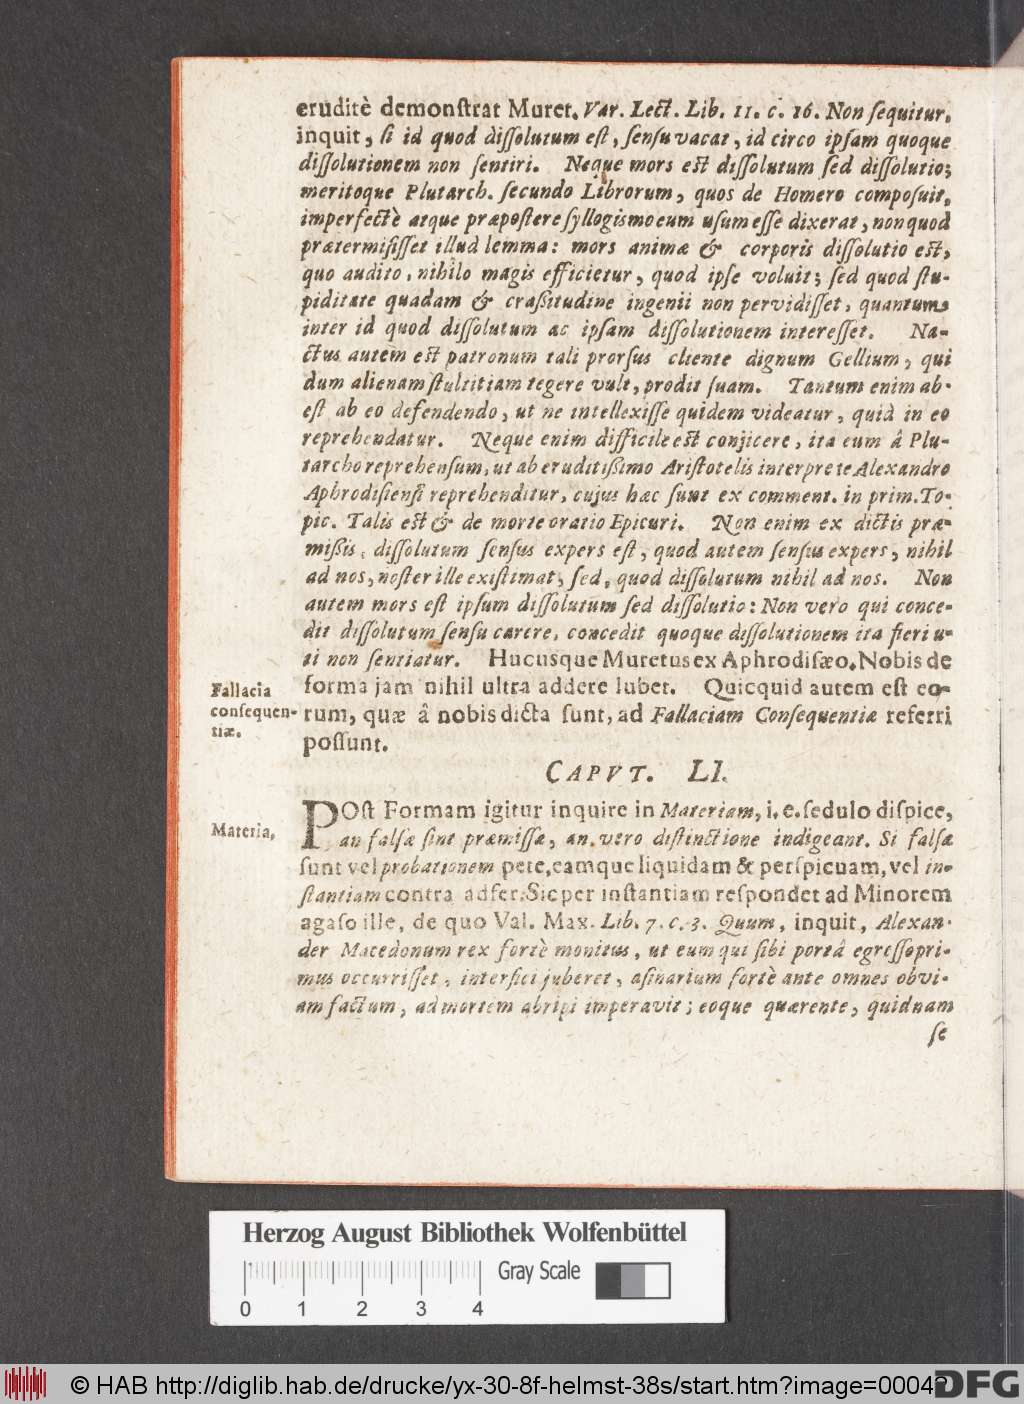 eruditè demonſtrat Muret. Var. Lect. Lib. 11. c. 16. Non ſequitur,
inquit, ſi id quod diſſolutum eſt, ſenſu vacat, id circo ipſam quoque
diſſolutionem non ſentiri. Neque mors eſt diſſolutum ſed diſſolutio;
meritoque Plutarch. ſecundo Librorum, quos de Homero compoſuit,
imperfectè atque præpoſtere ſyllogiſmo eum uſum eſſe dixerat, non quod
prætermiſiſſet illud lemma: mors animæ & corporis diſſolutio eſt,
quo audito, nihilo magis efficietur, quod ipſe voluit; ſed quod ſtu-
piditate quadam & craßitudine ingenii non pervidiſſet, quantum
inter id quod diſſolutum ac ipſam diſſolutionem intereſſet. Na-
ctus autem eſt patronum tali prorſus cliente dignum Gellium, qui
dum alienam ſtultitiam tegere vult, prodit ſuam. Tantum enim ab-
eſt ab eo defendendo, ut ne intellexiſſe quidem videatur, quid in eo
reprehendatur. Neque enim difficile eſt conjicere, ita eum â Plu-
tarcho reprehenſum, ut ab eruditißimo Ariſtotelis interprete Alexandro
Aphrodiſienſi reprehenditur, cujus hæc ſunt ex comment. in prim. To-
pic. Talis eſt & de morte oratio Epicuri. Non enim ex dictis præ-
mißis, diſſolutum ſenſus expers eſt, quod autem ſenſus expers, nihil
ad nos, noſter ille exiſtimat; ſed, quod diſſolutum nihil ad nos. Non
autem mors eſt ipſum diſſolutum ſed diſſolutio: Non vero qui conce-
dit diſſolutum ſenſu carere, concedit quoque diſſolutionem ita fieri u-
ti non ſentiatur. Hucusque Muretus ex Aphrodiſæo. Nobis de
forma jam nihil ultra addere lubet. Quicquid autem eſt eo-
rum, quæ â nobis dicta ſunt, ad Fallaciam Conſequentiæ referri
poſſunt.
Fallacia
conſequen-
tiæ.
CAPVT. LI.
POſt Formam igitur inquire in Materiam, i. e. ſedulo diſpice,
an falſæ ſint præmiſſæ, an vero diſtinctione indigeant. Si falſæ
ſunt vel probationem pete, eamque liquidam & perſpicuam, vel in-
ſtantiam contra adfer. Sic per inſtantiam reſpondet ad Minorem
agaſo ille, de quo Val. Max. Lib. 7. c. 3. Quum, inquit, Alexan-
der Macedonum rex fortè monitus, ut eum qui ſibi portâ egreſſo pri-
mus occurriſſet, interfici juberet, aſinarium fortè ante omnes obvi-
am factum, ad mortem abripi imperavit; eoque quærente, quidnam
ſe
Materia,
Herzog August Bibliothek Wolfenbüttel
Gray Scale
0 1 2 3 4
© HAB http://diglib.hab.de/drucke/yx-30-8f-helmst-38s/start.htm?image=00042
DFG